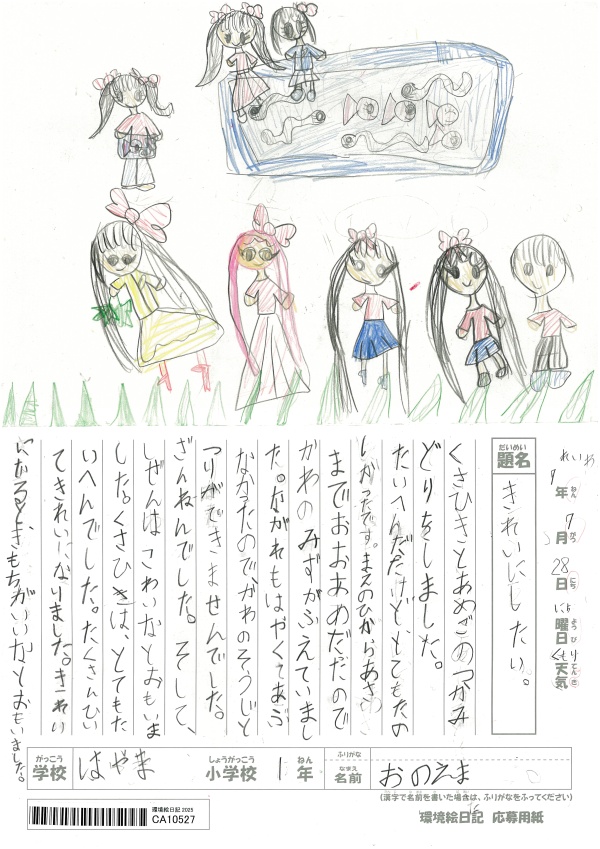 れいわ
9年7月28日にち曜日くもり天気
ねん
がつ
にち
ようび
てんき
だいめい
題名
きれいにしたい。
くさひきとあめごのつかみ
どりをしました。
たいへんだだけどとてもたの
しかったです。まえのひからあさ
までおおあめだだので
かわのみずがふえていまし
た。ながれもはやくてあぶ
なかたので、かわのそうじと
つりができませんでした。
ざんねんでした。そして、
しぜんはこわいなとおもいま
した。くさひきは、とてもた
いへんでした。たくさんひい
てきれいになりました。きれい
になると、きもちがいいなとおもいました。
がっこう
学校
はやま
しょうがっこう
小学校
1
ねん
年
ふりがな
なまえ
名前
おのえま
(漢字で名前を書いた場合は、ふりがなをふってください)
環境絵日記 2025
CA10527
環境絵日記 応募用紙